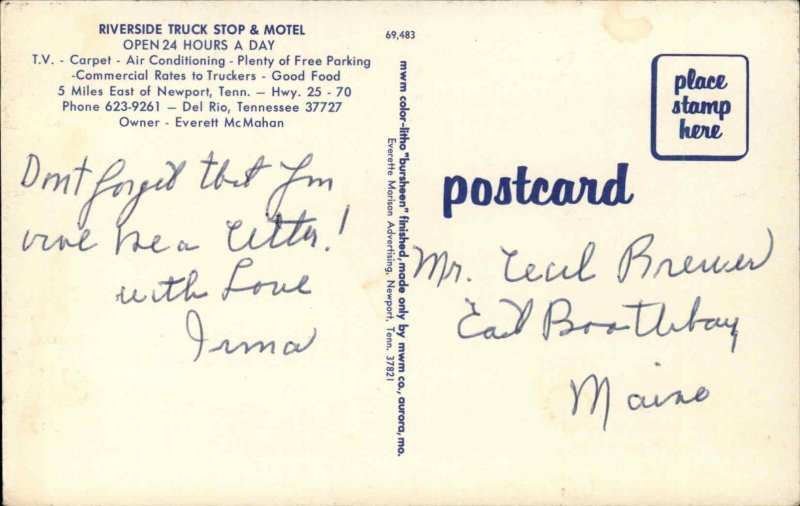 RIVERSIDE TRUCK STOP & MOTEL
OPEN 24 HOURS A DAY
T.V. - Carpet - Air Conditioning - Plenty of Free Parking
-Commercial Rates to Truckers - Good Food
5 Miles East of Newport, Tenn. — Hwy. 25 - 70
Phone 623-9261 — Del Rio, Tennessee 37727
Owner - Everett McMahan
Dont forget that you
me a letter!
with Love
Irma
69,483
mwm color-litho "bursheen" finished, made only by mwm co., aurora, mo.
Everette Morison Advertising, Newport, Tenn. 37821
place
stamp
here
postcard
Mr. Cecil Brewer
East Boothbay
Maine